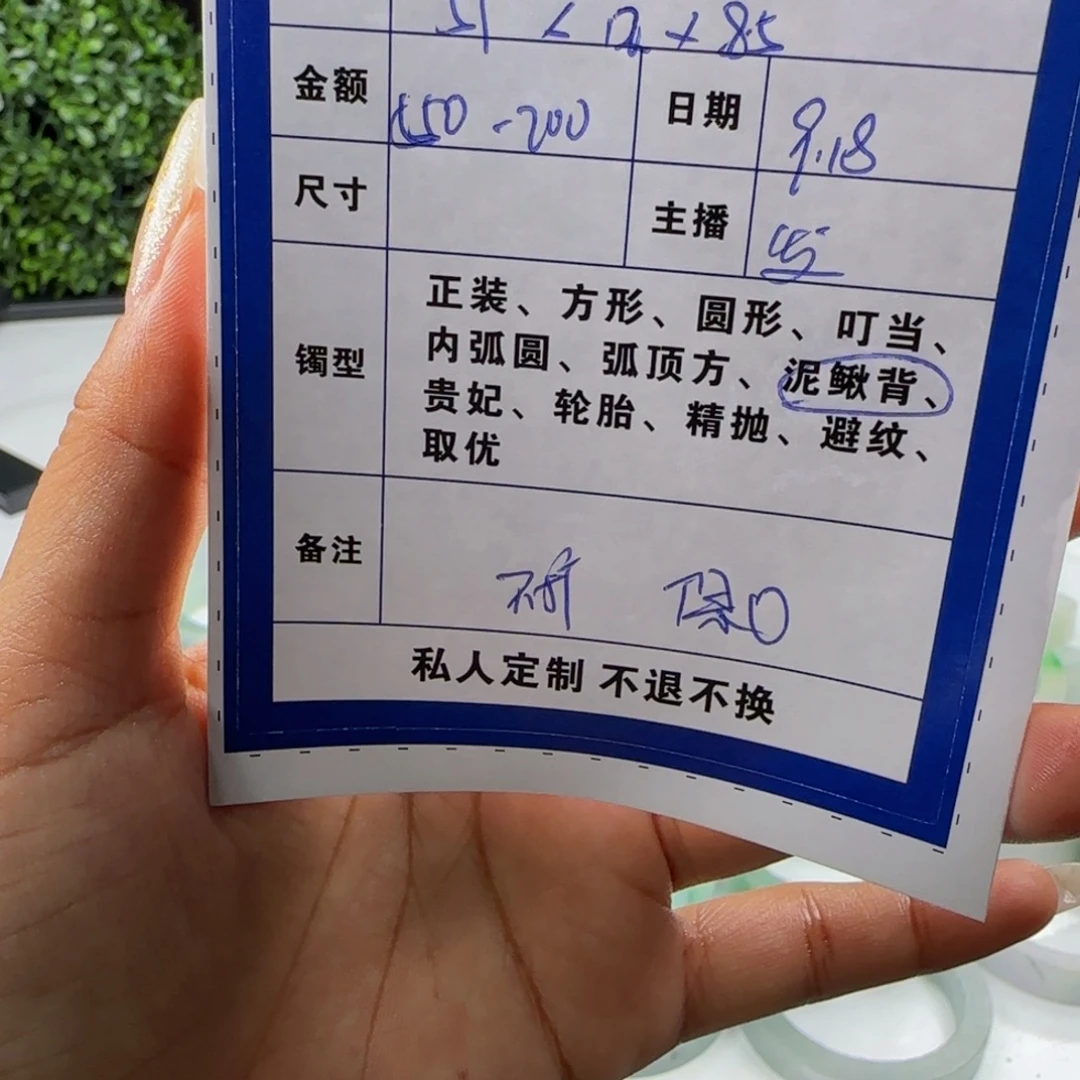 金额 550-200 日期 9.18
尺寸 主播
镯型 正装、方形、圆形、叮当、
内弧圆、弧顶方、泥鳅背、
贵妃、轮胎、精抛、避纹、
取优
备注
私人定制 不退不换